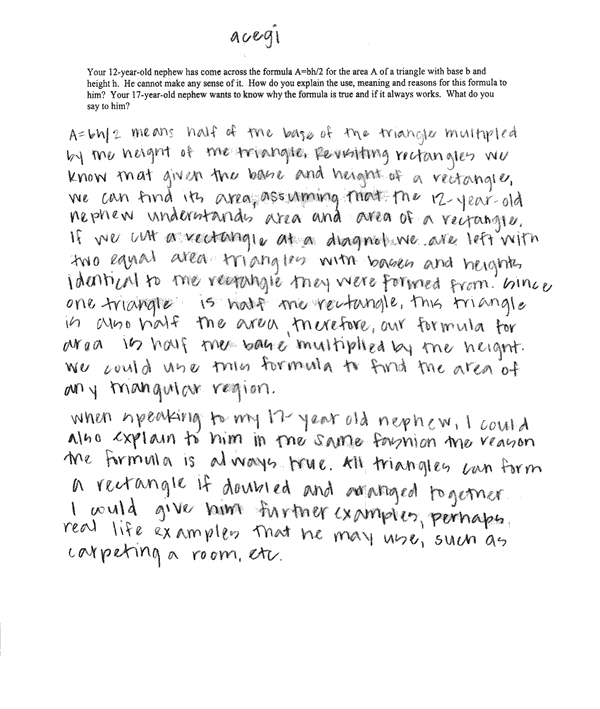 acegi
Your 12-year-old nephew has come across the formula A=bh/2 for the area A of a triangle with base b and
height h. He cannot make any sense of it. How do you explain the use, meaning and reasons for this formula to
him? Your 17-year-old nephew wants to know why the formula is true and if it always works. What do you
say to him?
A=bh/2 means half of the base of the triangle multipled
by the height of the triangle. Revisiting rectangles we
know that given the base and height of a rectangle,
we can find its area, assuming that the 12-year-old
nephew understands area and area of a rectangle.
If we cut a rectangle at a diagnol we are left with
two equal area triangles with bases and heights
identical to the rectangle they were formed from. Since
one triangle is half the rectangle, this triangle
is also half the area, therefore, our formula for
area is half the base multiplied by the height.
We could use this formula to find the area of
any triangular region.
When speaking to my 17-year old nephew, I could
also explain to him in the same fashion the reason
the formula is always true. All triangles can form
a rectangle if doubled and arranged together
I could give him further examples, perhaps
real life examples that he may use, such as
carpeting a room, etc.